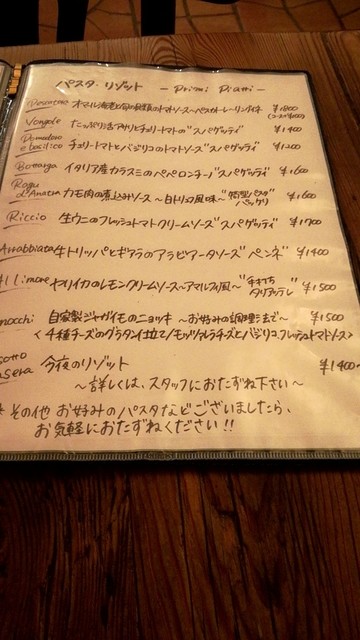 パスタ・リゾット － Primi Piatti －
Pescatore オマール海老と旬の魚貝のトマトソース ¥1800
Vongole たっぷり活アサリとチェリートマトの"スパゲッティ" ¥1400
Pomodoro e basilico チェリートマトとバジリコのトマトソース"スパゲッティ" ¥1200
Bottarga イタリア産カラスミのペペロンチーノ"スパゲッティ" ¥1600
Ragu d'Anatra カモ肉の煮込みソース ～白トリュフ風味～ ¥1600
Riccio 生ウニのフレッシュトマトクリームソース"スパゲッティ" ¥1700
Arrabbiata 牛トリッパとギアラのアラビアータソース"ペンネ" ¥1400
limone ヤリイカのレモンクリームソース～アマルフィ風～ "手打ちタリアッテレ" ¥1500
nocchi 自家製ジャガイモのニョッキ ～お好みの調理法で～ ¥1500
〈4種チーズのグラタン仕立て/モッツァレラチーズとバジリコ、フレッシュトマトソース〉
sotto sera 今夜のリゾット ¥1400～
～詳しくは、スタッフにおたずね下さい～
* その他 お好みのパスタなどございましたら、
お気軽におたずねください!!